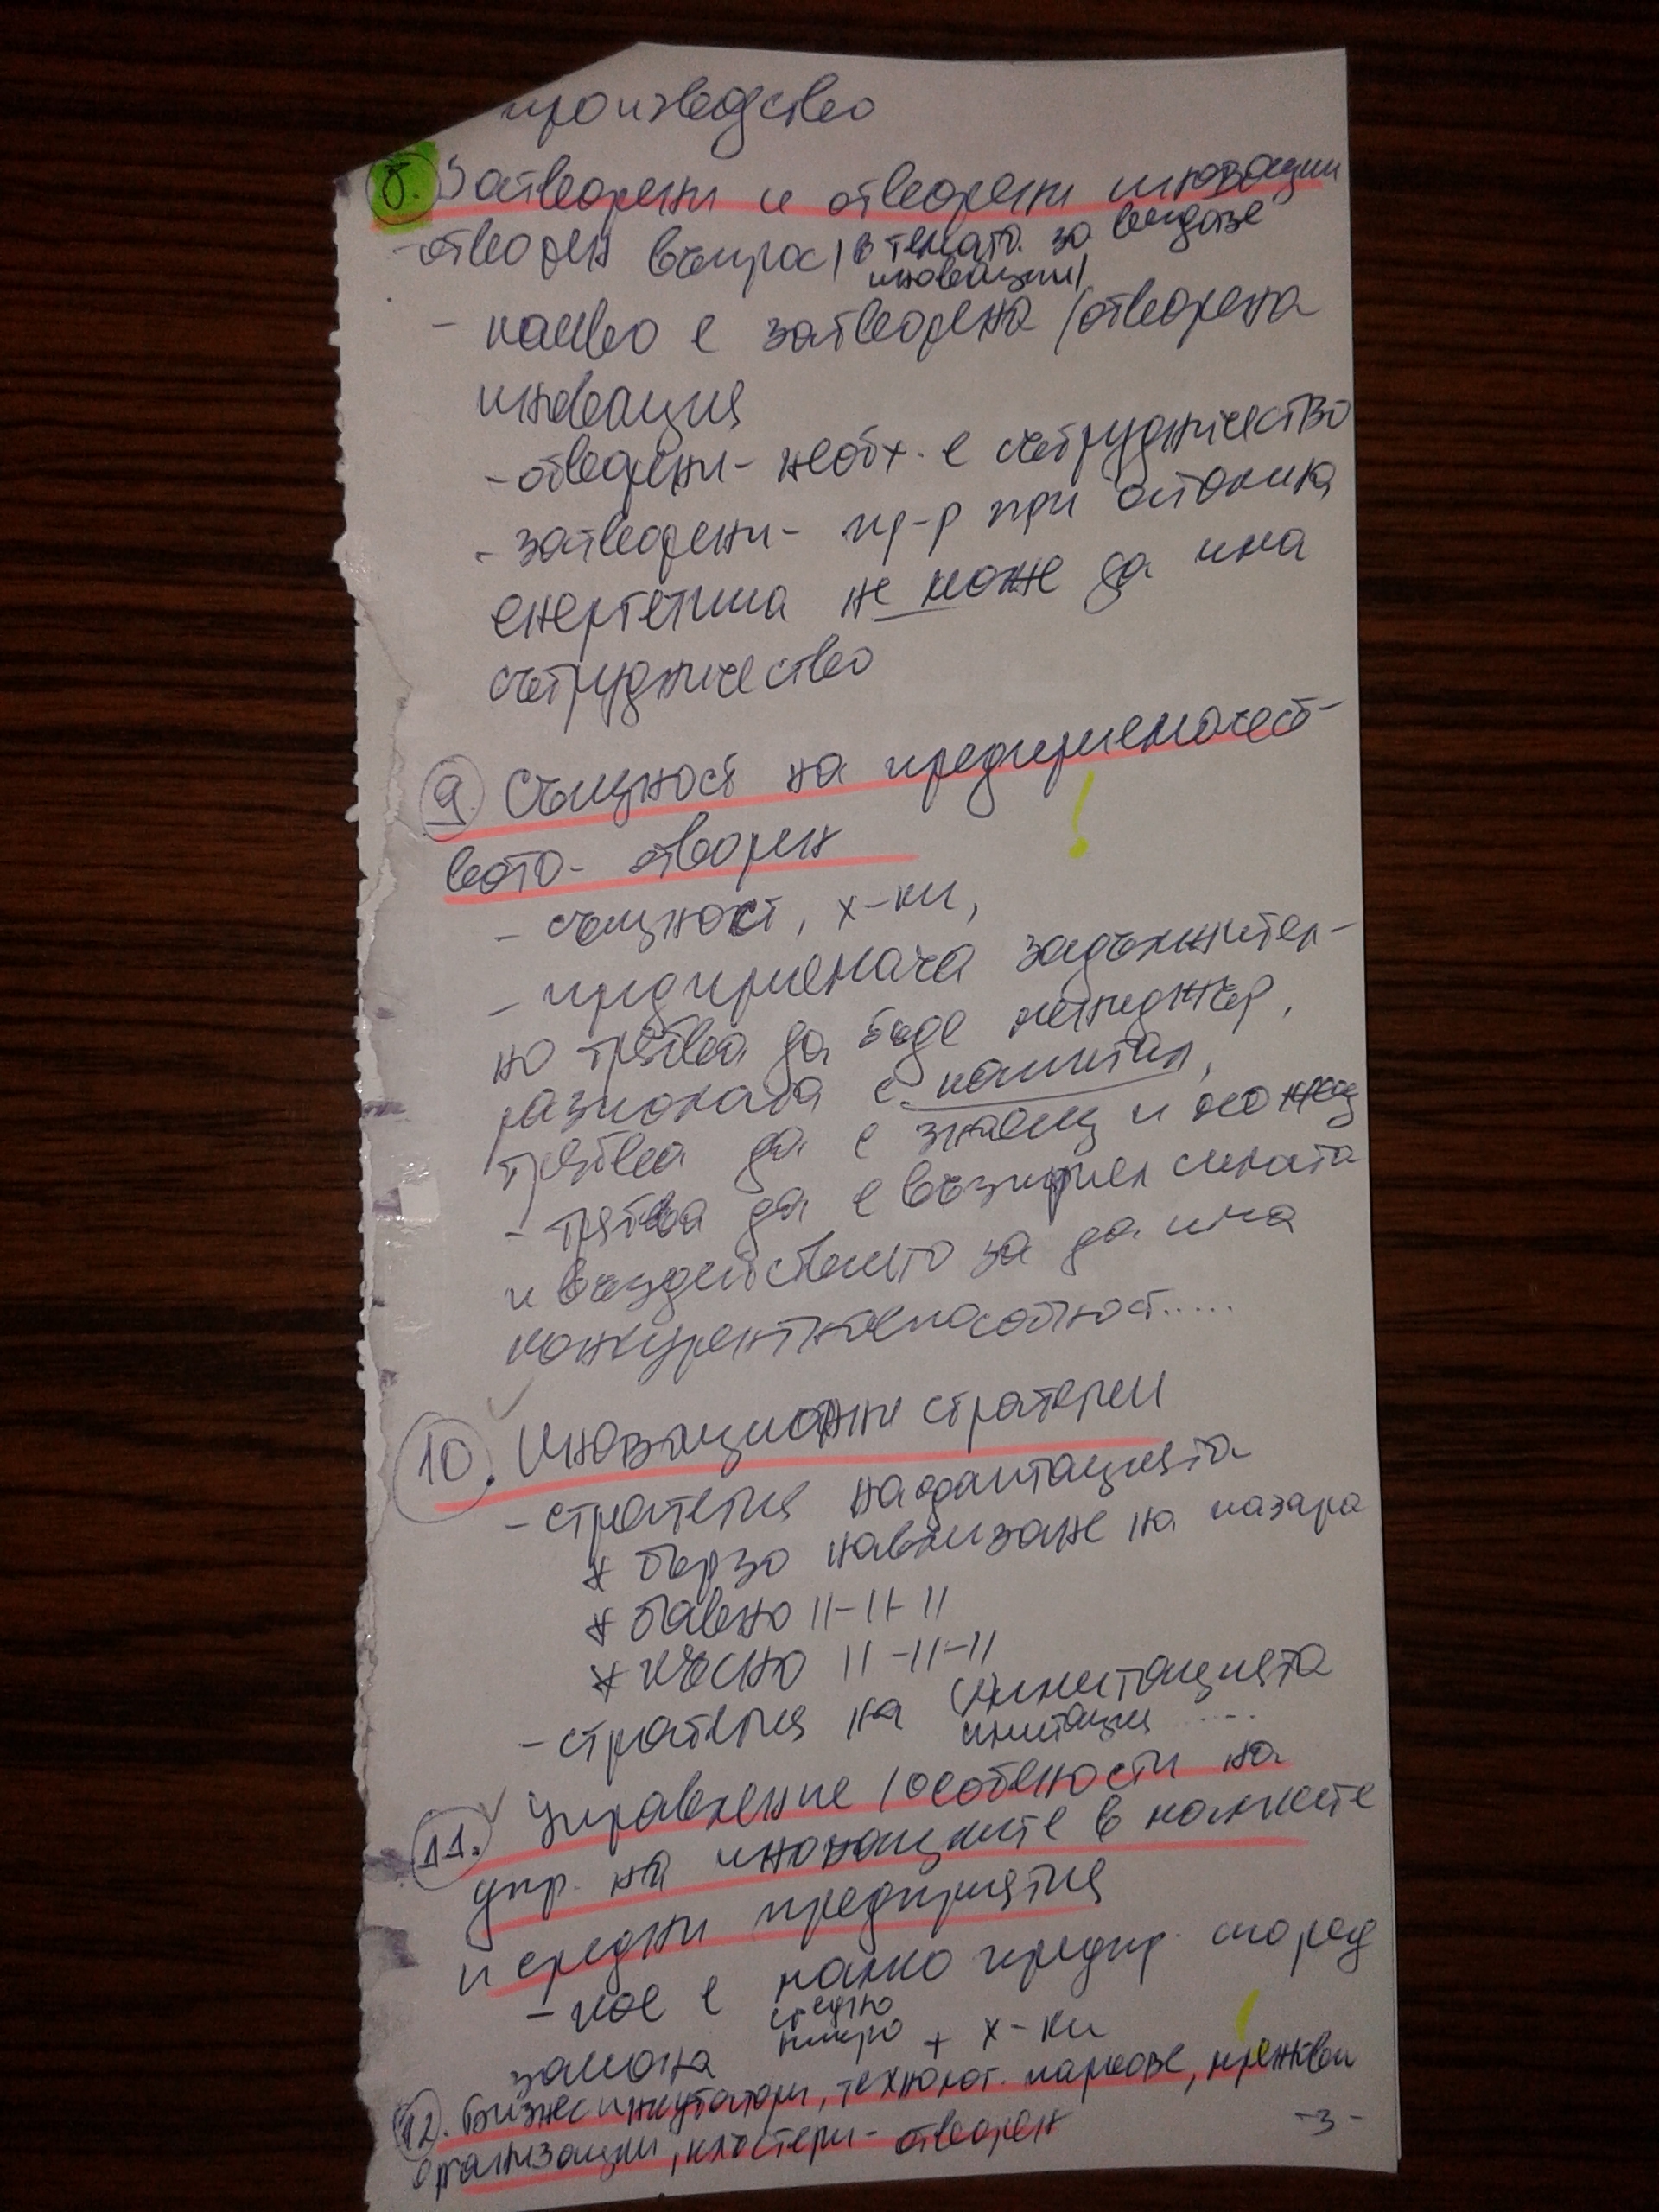 производство
8. Затворени и отворени иновации
- отворен въпрос / в темата за видове
иновации /
- какво е затворена / отворена
иновация
- отворени - необх. е сътрудничество
- затворени - пр-р при атомна
енергетика не може да има
сътрудничество
9. Същност на предприемачест-
вото - отворен
- същност, х-ки,
- предприемача задължител-
но трябва да бъде мениджър,
разполага с капитал,
трябва да е знаещ и можещ
- трябва да е възприел силата
и въздействието за да има
конкурентноспособност.....
10. Иновационни стратегии
- стратегия на адаптацията
* бързо навлизане на пазара
* бавно 11-11-11
* късно 11-11-11
- стратегия на имитацията
имитация .....
11. Управление / особености на
упр. на иновациите в малките
и средни предприятия
- кое е малко предпр. според
средно
закона микро + х-ки
12. Бизнес инкубатори, технолог. паркове, мрежови
организации, клъстери - отворен
-3-